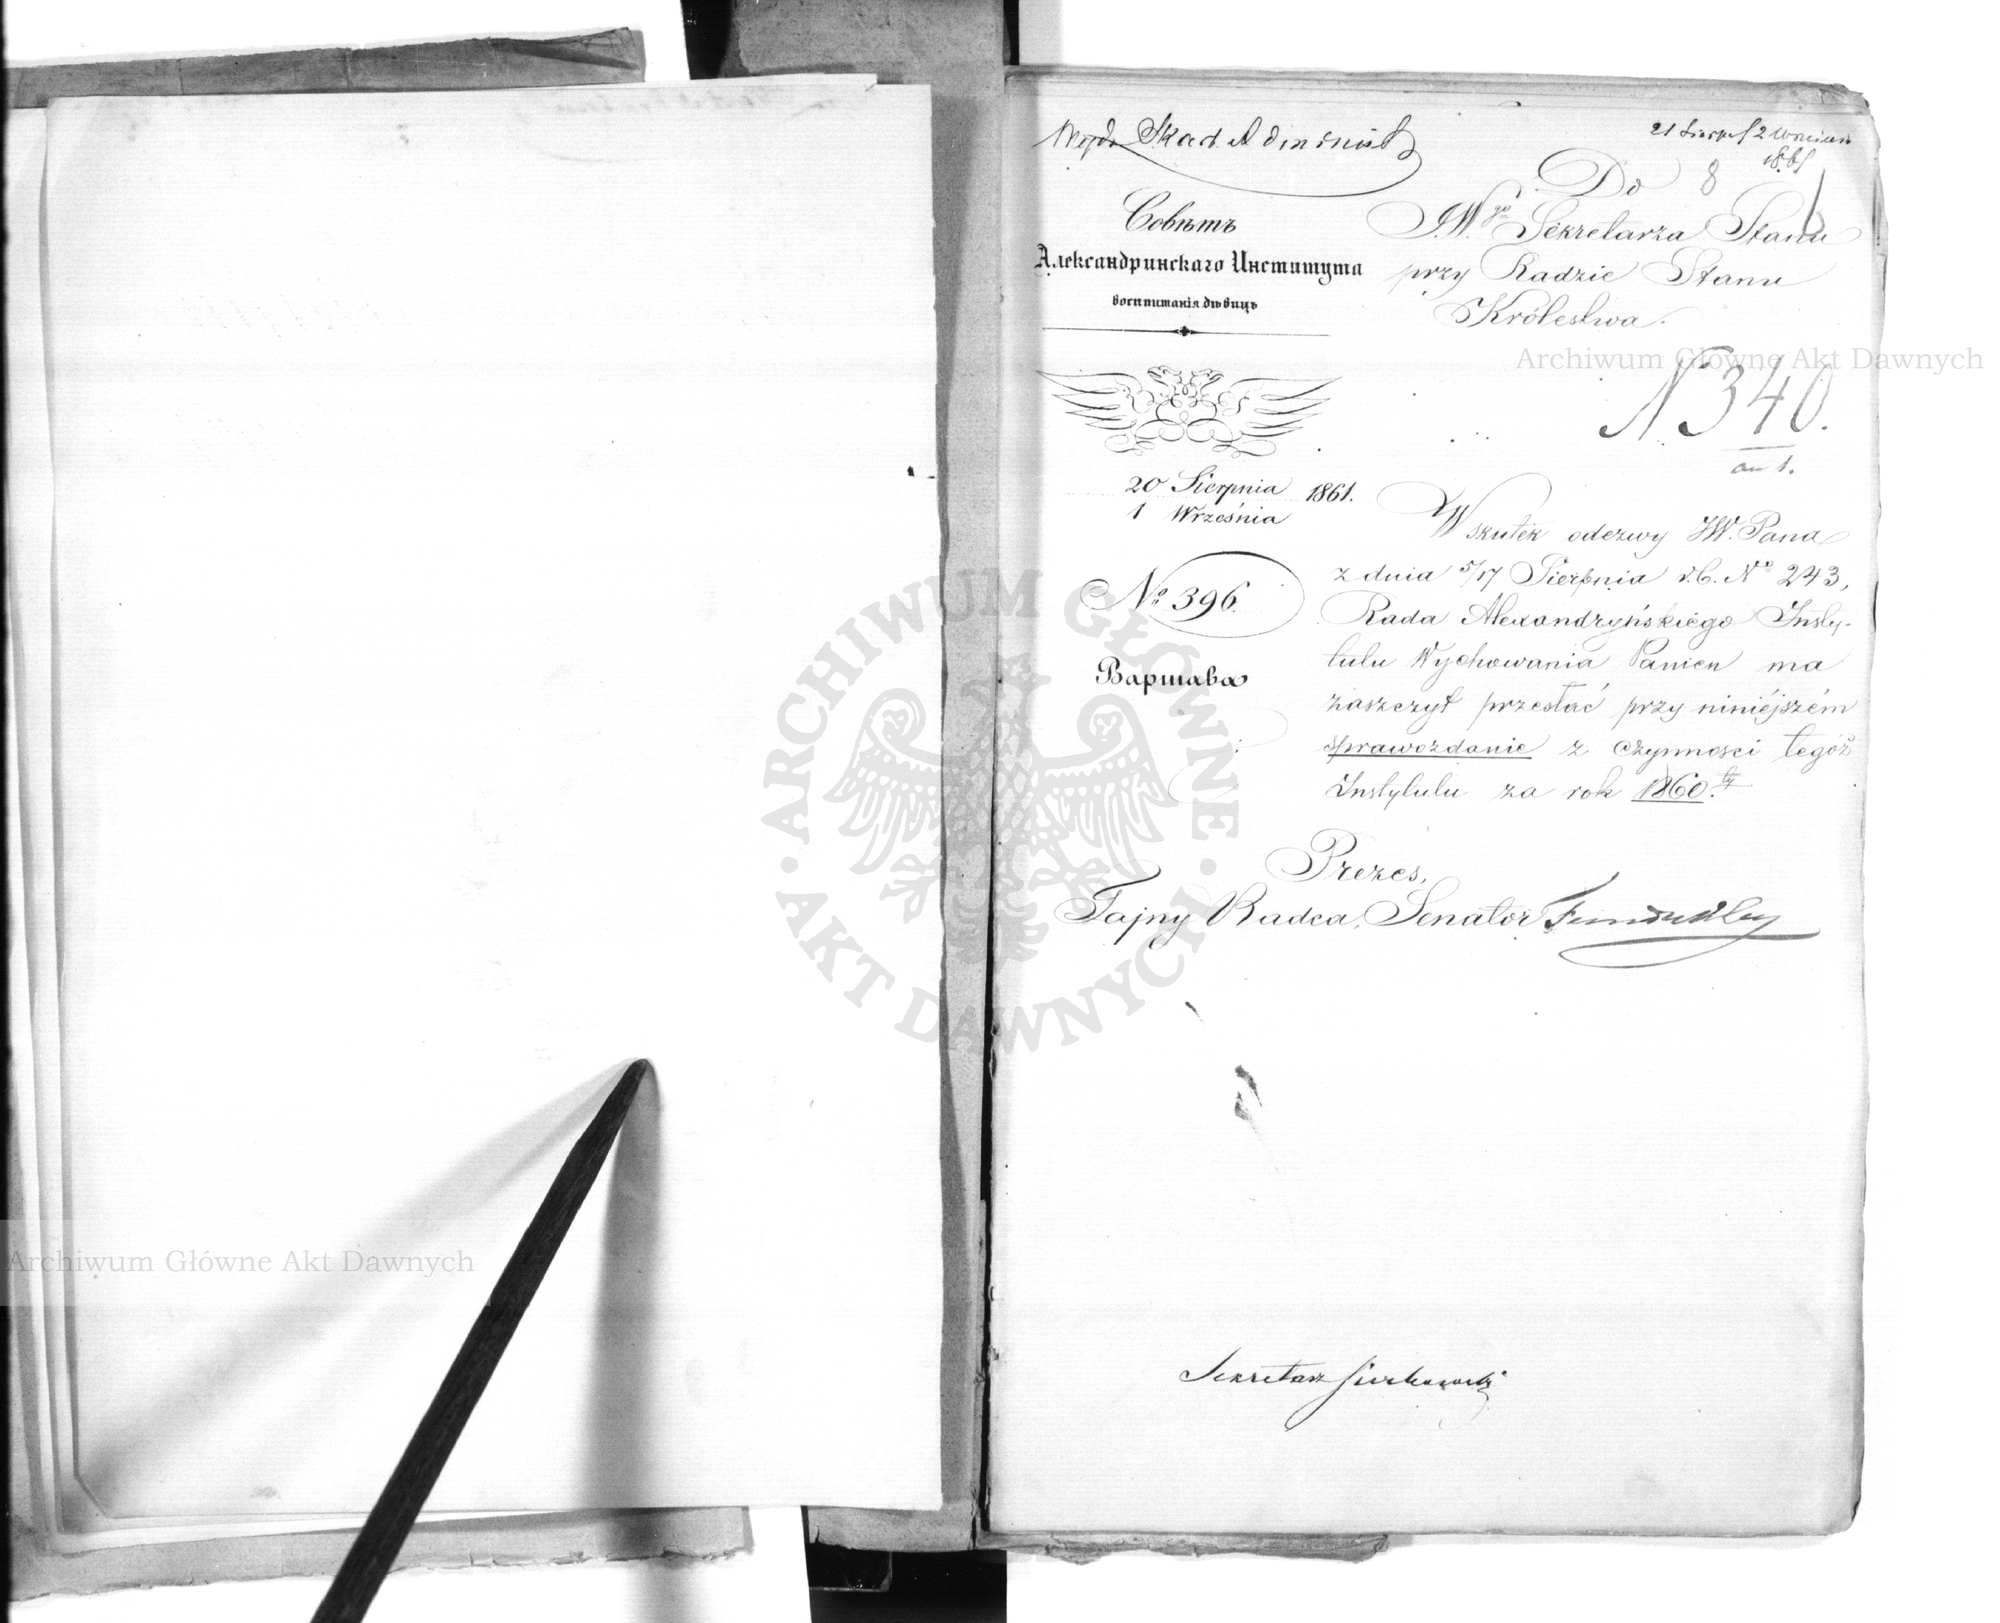 Skarb. Administ
21 Sierp./2 Wrześni
1861
Do 8
JW.go Sekretarza Stanu
przy Radzie Stanu
Królestwa.
Совѣтъ
Александринскаго Института
воспитанія дѣвицъ
N 340.
20 Sierpnia 1861.
1 Września
Wskutek odezwy JW. Pana
z dnia 5/17 Sierpnia r.b. No 243,
Rada Alexandryńskiego Insty-
tutu Wychowania Panien ma
zaszczyt przesłać przy niniéjszém
sprawozdanie z czynności tegóż
Instytutu za rok 1860.
No 396.
Варшава
Prezes,
Tajny Radca, Senator Fundukley
Sekretarz
Archiwum Główne Akt Dawnych
Archiwum Główne Akt Dawnych
ARCHIWUM GŁÓWNE · AKT DAWNYCH ·